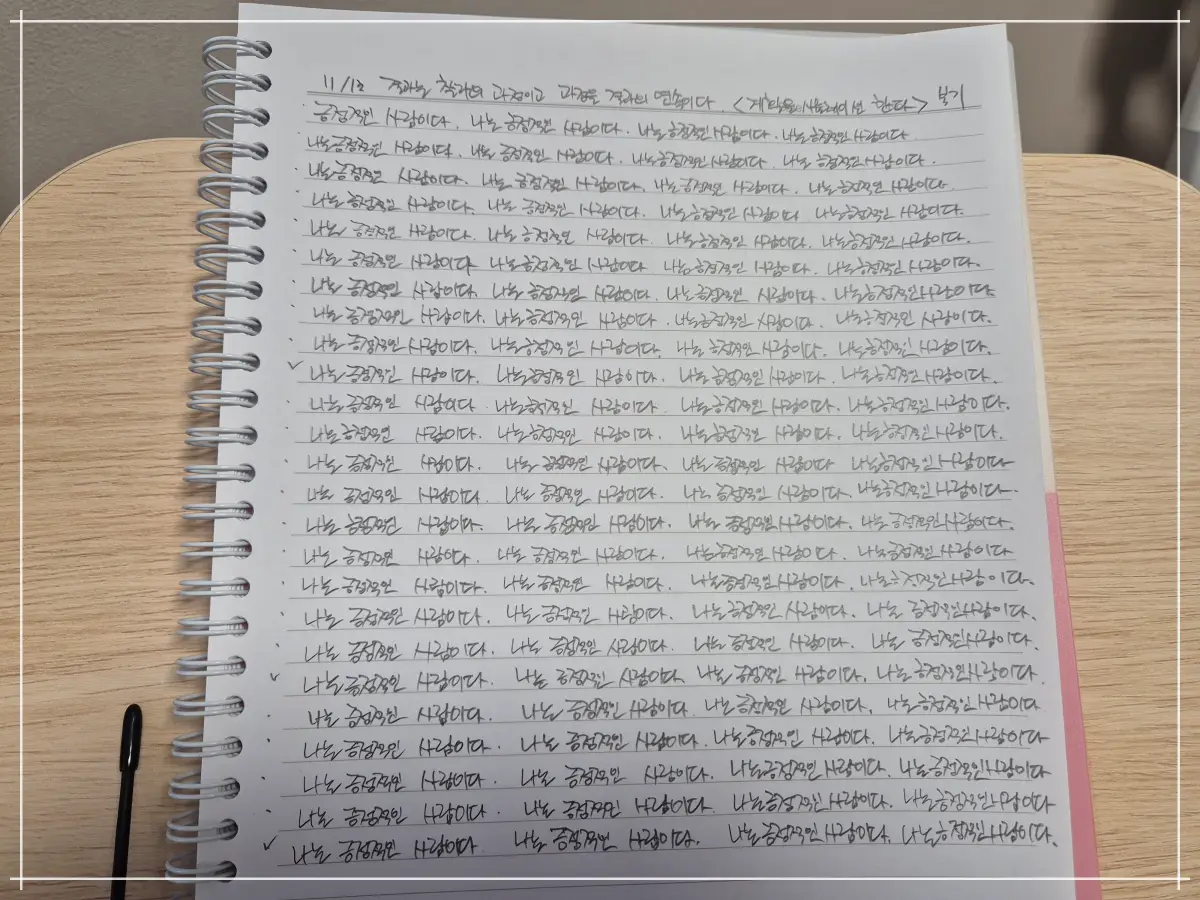 결과는 과정이고 과정은 결과의 연속이다. <계획을 시뮬레이션 한다>
긍정적인 사람이다. 나는 긍정적인 사람이다. 나는 긍정적인 사람이다. 나는 긍정적인 사람이다
나는 긍정적인 사람이다. 나는 긍정적인 사람이다. 나는 긍정적인 사람이다. 나는 긍정적인 사람이다.
나는 긍정적인 사람이다. 나는 긍정적인 사람이다. 나는 긍정적인 사람이다. 나는 긍정적인 사람이다.
나는 긍정적인 사람이다. 나는 긍정적인 사람이다. 나는 긍정적인 사람이다 나는 긍정적인 사람이다.
나는 긍정적인 사람이다. 나는 긍정적인 사람이다. 나는 긍정적인 사람이다. 나는 긍정적인 사람이다.
나는 긍정적인 사람이다 나는 긍정적인 사람이다 나는 긍정적인 사람이다. 나는 긍정적인 사람이다.
나는 긍정적인 사람이다. 나는 긍정적인 사람이다. 나는 긍정적인 사람이다. 나는 긍정적인 사람이다.
나는 긍정적인 사람이다. 나는 긍정적인 사람이다. 나는 긍정적인 사람이다. 나는 긍정적인 사람이다.
나는 긍정적인 사람이다. 나는 긍정적인 사람이다. 나는 긍정적인 사람이다. 나는 긍정적인 사람이다.
나는 긍정적인 사람이다. 나는 긍정적인 사람이다. 나는 긍정적인 사람이다. 나는 긍정적인 사람이다.
나는 긍정적인 사람이다. 나는 긍정적인 사람이다. 나는 긍정적인 사람이다. 나는 긍정적인 사람이다.
나는 긍정적인 사람이다. 나는 긍정적인 사람이다. 나는 긍정적인 사람이다. 나는 긍정적인 사람이다.
나는 긍정적인 사람이다. 나는 긍정적인 사람이다. 나는 긍정적인 사람이다 나는 긍정적인 사람이다
나는 긍정적인 사람이다. 나는 긍정적인 사람이다. 나는 긍정적인 사람이다. 나는 긍정적인 사람이다.
나는 긍정적인 사람이다. 나는 긍정적인 사람이다. 나는 긍정적인 사람이다. 나는 긍정적인 사람이다.
나는 긍정적인 사람이다. 나는 긍정적인 사람이다. 나는 긍정적인 사람이다. 나는 긍정적인 사람이다
나는 긍정적인 사람이다. 나는 긍정적인 사람이다. 나는 긍정적인 사람이다. 나는 긍정적인 사람이다.
나는 긍정적인 사람이다. 나는 긍정적인 사람이다. 나는 긍정적인 사람이다. 나는 긍정적인 사람이다.
나는 긍정적인 사람이다. 나는 긍정적인 사람이다. 나는 긍정적인 사람이다. 나는 긍정적인 사람이다.
나는 긍정적인 사람이다. 나는 긍정적인 사람이다. 나는 긍정적인 사람이다. 나는 긍정적인 사람이다.
나는 긍정적인 사람이다. 나는 긍정적인 사람이다. 나는 긍정적인 사람이다. 나는 긍정적인 사람이다
나는 긍정적인 사람이다. 나는 긍정적인 사람이다. 나는 긍정적인 사람이다. 나는 긍정적인 사람이다
나는 긍정적인 사람이다. 나는 긍정적인 사람이다. 나는 긍정적인 사람이다. 나는 긍정적인 사람이다
나는 긍정적인 사람이다. 나는 긍정적인 사람이다. 나는 긍정적인 사람이다. 나는 긍정적인 사람이다
나는 긍정적인 사람이다. 나는 긍정적인 사람이다. 나는 긍정적인 사람이다. 나는 긍정적인 사람이다.